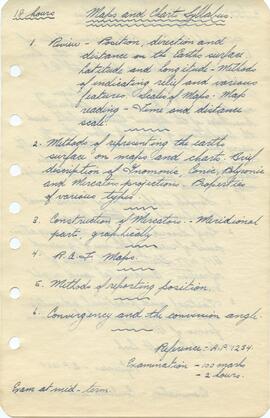 18 hours
Maps and Chart Syllabus.
1. Review - Position, direction and
distance on the Earths surface
Latitude and Longitude - Methods
of indicating relief and various
features. Scales of Maps - Map
reading - Time and distance
scale.
2. Methods of representing the earths
surface on maps and charts. Brief
description of Gnomonic, Conic, Polyconic
and Mercator projections. Properties
of various types
3. Construction of Mercators - Meridional
parts, graphically
4. R.A.F. Maps.
5. Methods of reporting position
6. Convergency and the conversion angle.
Reference:- A.P. 1234.
Examination - 100 marks
- 2 hours.
Exam at mid-term.